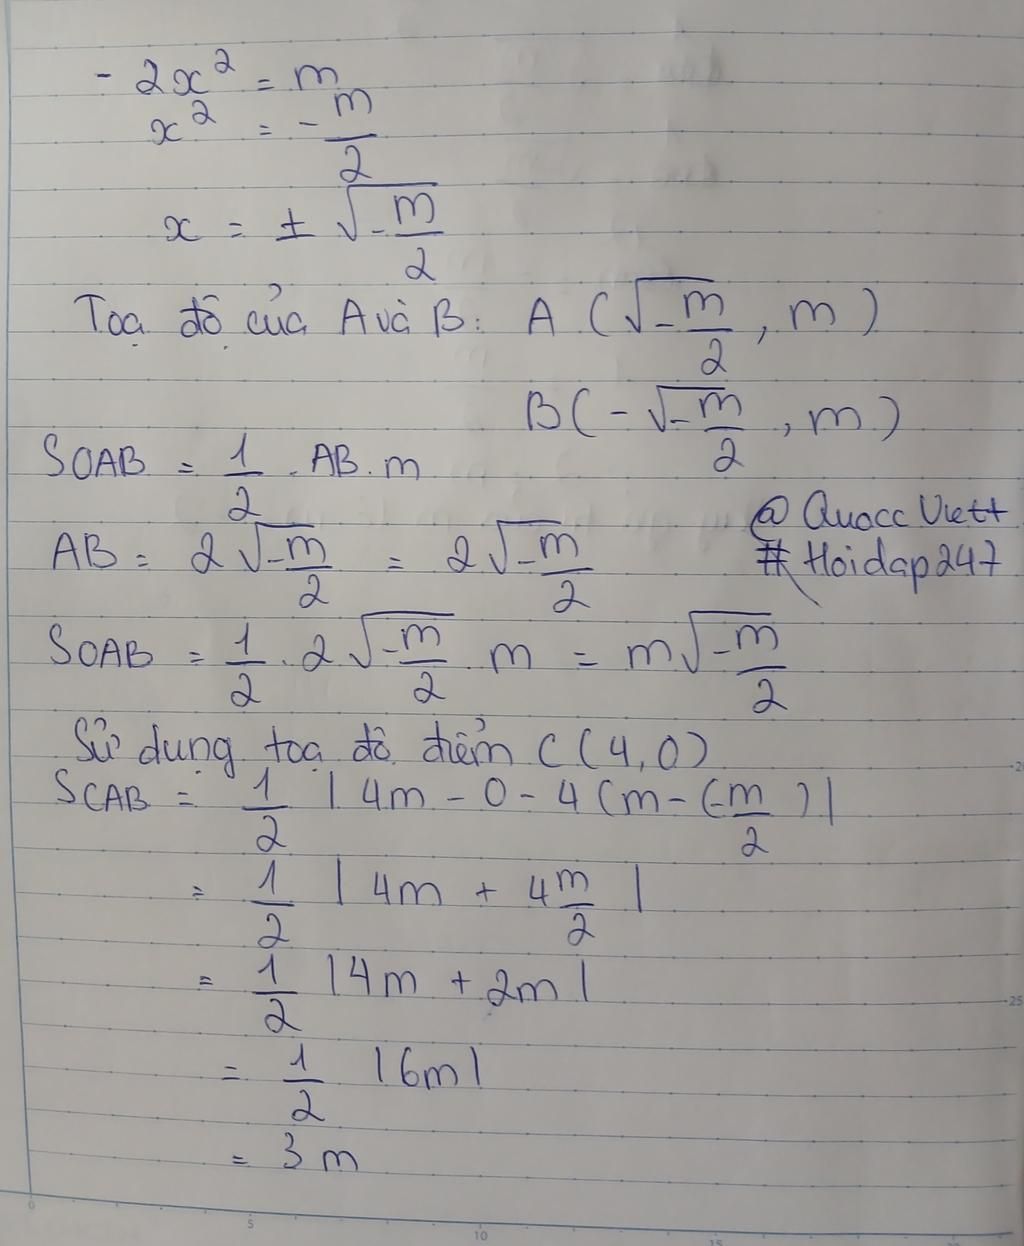 - 2x² = m
x² = - m/2
x = ± √-m/2
Toạ độ của A và B: A (√-m/2, m)
B(-√-m/2, m)
SOAB = 1/2 . AB . m
@QuoccViett
AB = 2√-m/2 = 2√-m/2
#Hoidap247
SOAB = 1/2 . 2√-m/2 . m = m√-m/2
Sử dụng toạ độ điểm C(4,0)
SCAB = 1/2 | 4m - 0 - 4(m - (-m/2)|
= 1/2 | 4m + 4m/2 |
= 1/2 |4m + 2m|
= 1/2 |6m|
= 3m
0 5 10 15
20
25